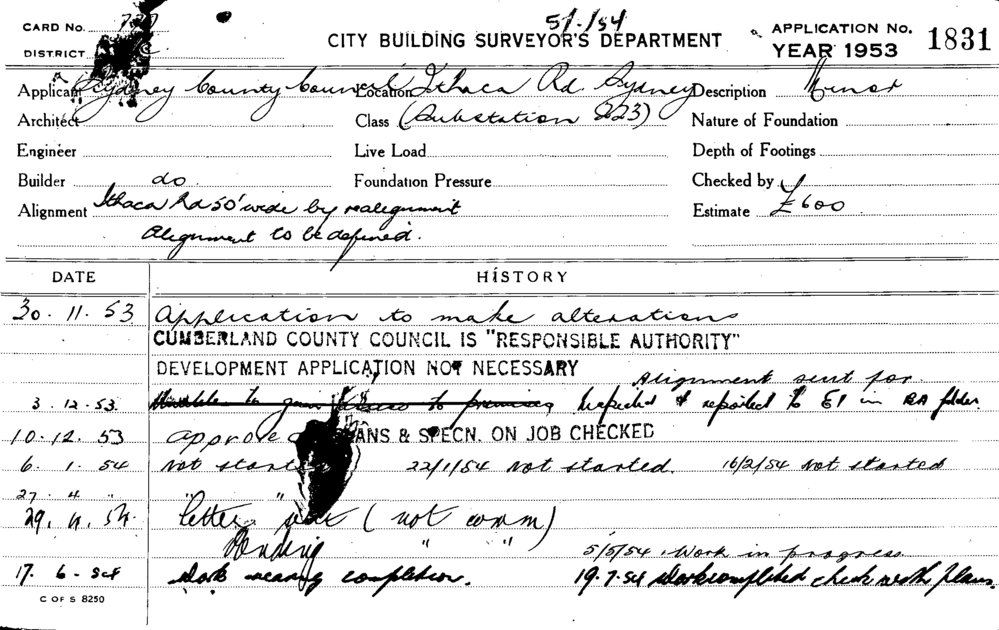 51/54
CARD No.
DISTRICT
CITY BUILDING SURVEYOR'S DEPARTMENT
APPLICATION No. 1831
YEAR 1953
Applicant Sydney County Council Location Ithaca Rd. Sydney Description Minor
Architect Class (Substation 223) Nature of Foundation
Engineer Live Load Depth of Footings
Builder do. Foundation Pressure Checked by
Alignment Ithaca Rd 50' wide by realignment Estimate £600
Alignment to be defined.
DATE HISTORY
30.11.53 Application to make alterations
CUMBERLAND COUNTY COUNCIL IS "RESPONSIBLE AUTHORITY"
DEVELOPMENT APPLICATION NOT NECESSARY
Alignment sent for
3.12.53. Unable to gain access to premises, Inspected & reported to E1 in BA folder.
10.12.53 approved PLANS & SPECN. ON JOB CHECKED
6.1.54 Not started 22/1/54 Not started. 16/2/54 Not started
27 " " " "
29.4.54. Letter sent (not comm)
Pending " " 5/5/54. Work in progress
17.6.54 Work nearing completion. 19.7.54 Work completed check with plans.
C OF S 8250